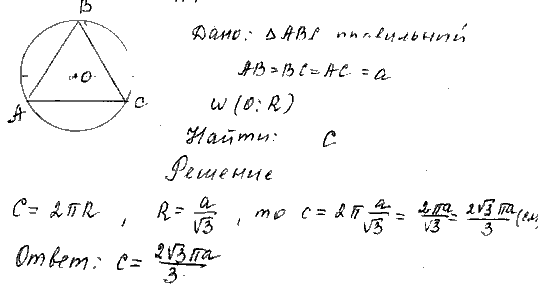 B
A
C
O
Дано: ΔABC правильный
AB=BC=AC=a
W(O;R)
Найти: C
Решение
C=2πR, R=a/√3, то c=2π a/√3 = 2πa/√3 = 2√3πa/3 (см)
Ответ: c=2√3πa/3